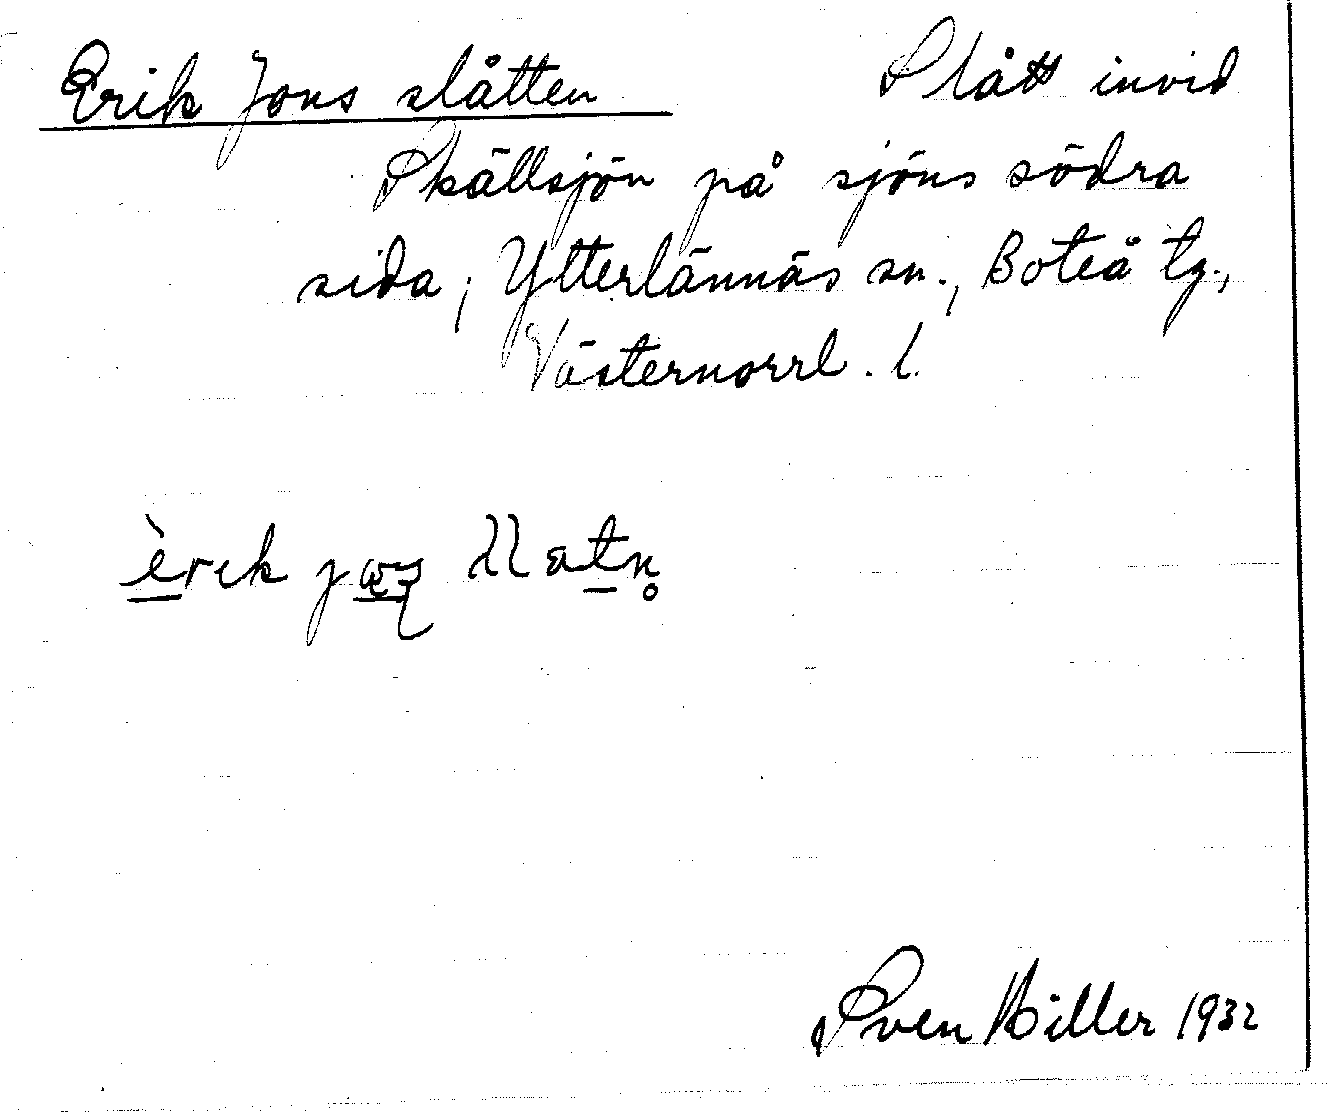 Erik Jons slåtten Slått invid
Skällsjön på sjöns södra
sida, Ytterlännäs sn., Boteå tg.,
Västernorrl. l.
èrik
Sven Hiller 1932